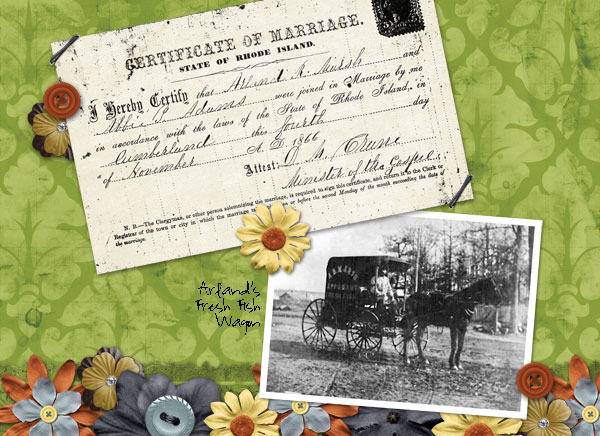 CERTIFICATE OF MARRIAGE.
STATE OF RHODE ISLAND.
I Hereby Certify that Arland R. Marsh and
Abbie Adams were joined in Marriage by me
in accordance with the laws of the State of Rhode Island, in
Cumberland this fourth day
of November A. D. 1866
Attest: O. M. Crune
Minister of the Gospel
N. B.—The Clergyman, or other person solemnizing the marriage, is required to sign this certificate, and return it to the Clerk or
Registrar of the town or city in which the marriage is on or before the second Monday of the month succeeding the date of
the marriage.
Arland's
Fresh Fish
Wagon